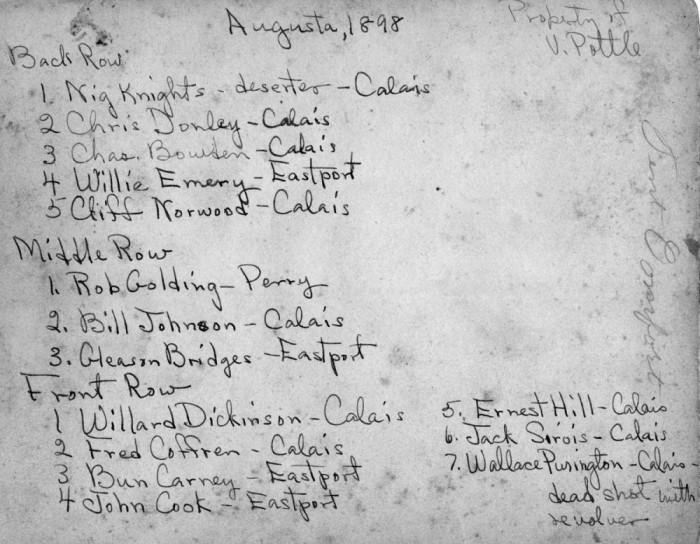 Augusta, 1898
Property of
V. Pottle
Back Row
1. Nig Knights - deserter - Calais
2 Chris Donley - Calais
3 Chas. Bowden - Calais
4 Willie Emery - Eastport
5 Cliff Norwood - Calais
Middle Row
1. Rob Golding - Perry
2. Bill Johnson - Calais
3. Gleason Bridges - Eastport
Front Row
1 Willard Dickinson - Calais
2 Fred Coffren - Calais
3 Bun Carney - Eastport
4 John Cook - Eastport
5. Ernest Hill - Calais
6. Jack Sirois - Calais
7. Wallace Purington - Calais -
dead shot with
revolver
Tent Comfort